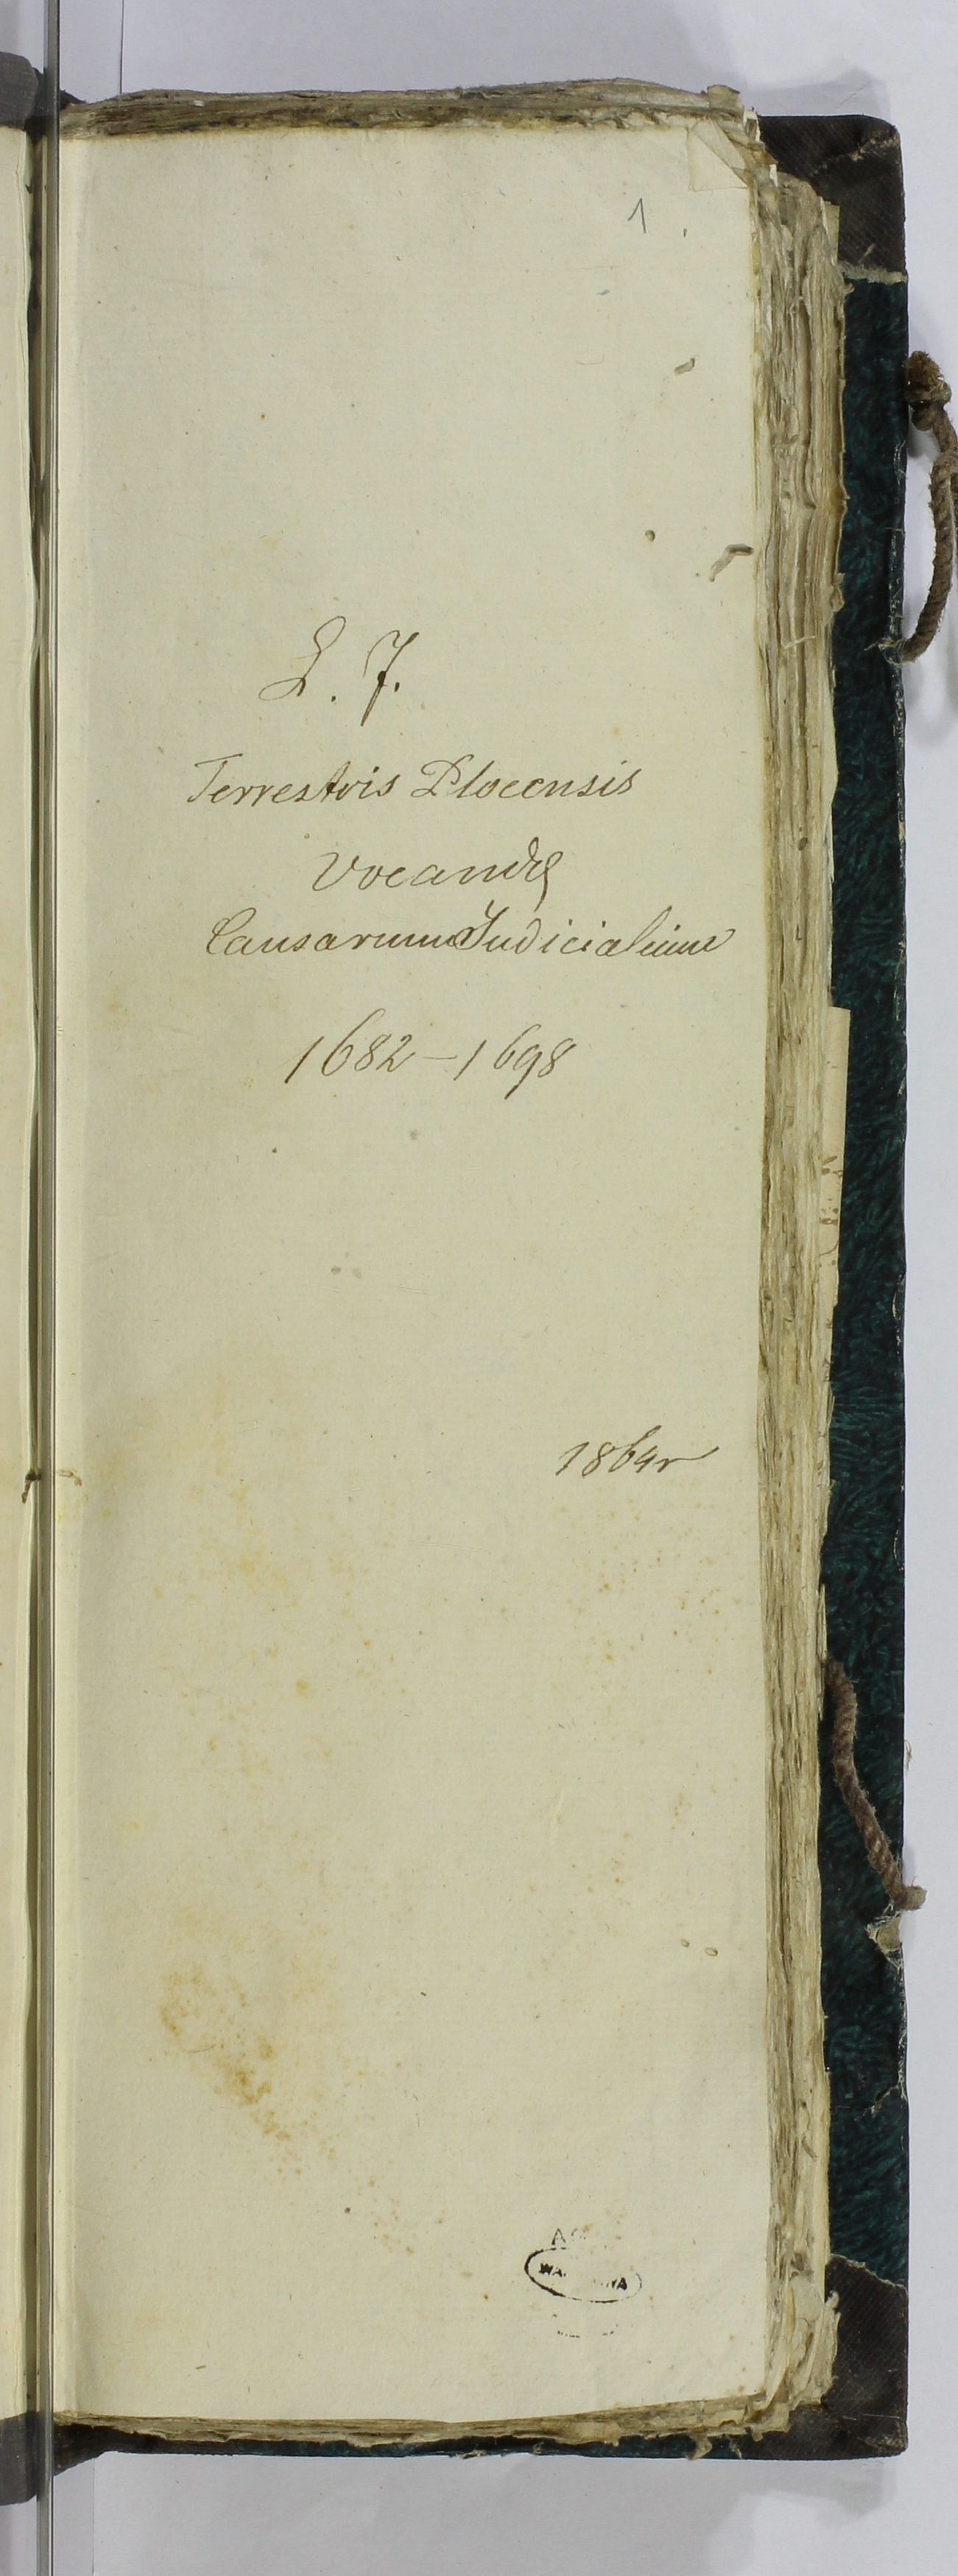 1
L. 7.
Terrestris Plocensis
Vocandę
Causarum Judicialium
1682–1698
1864r
WA